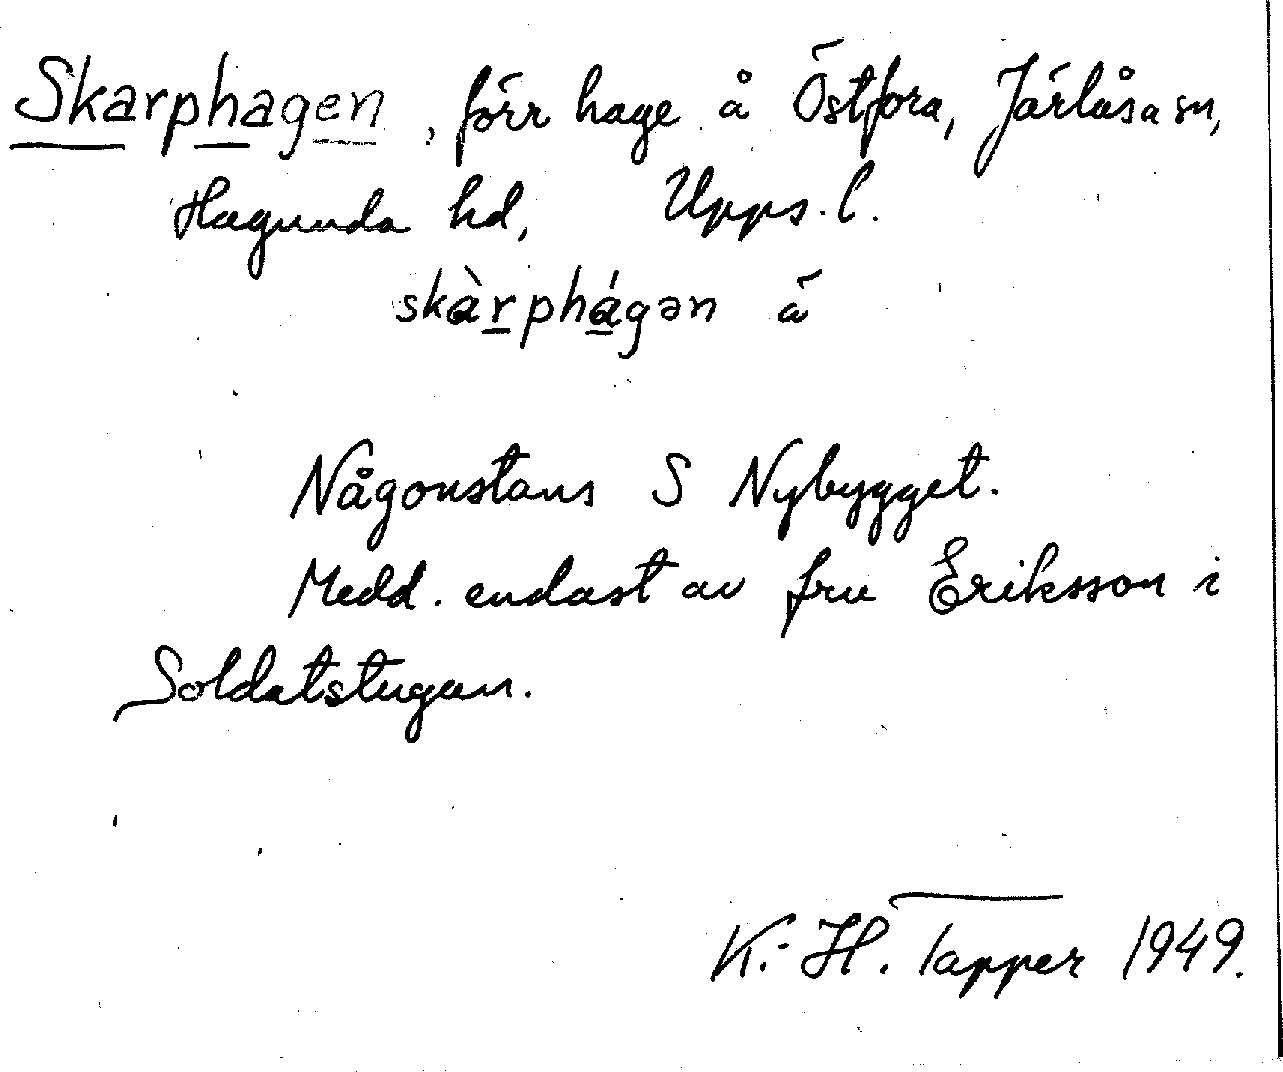 Skarphagen, förr hage å Östfora, Järlåsa sn,
Hagunda hd, Upps. l.
skàrphágən ā
Någonstans S Nybygget.
Medd. endast av fru Eriksson i
Soldatstugan.
K.-H. Tapper 1949.